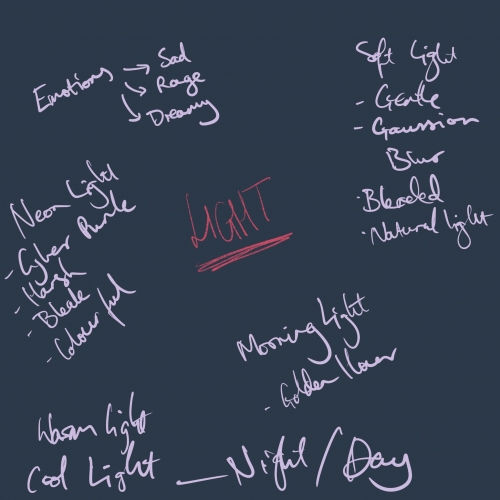 Emotions → Sad
→ Rage
→ Dreamy
Soft Light
- Gentle
- Gaussion
Blur
· Bleeded
· Natural light
Neon Light
- Cyber Punk
- Harsh
- Bleak
- Colourful
LIGHT
Morning Light
- Golden Hour
Warm Light
Cool Light — Night / Day